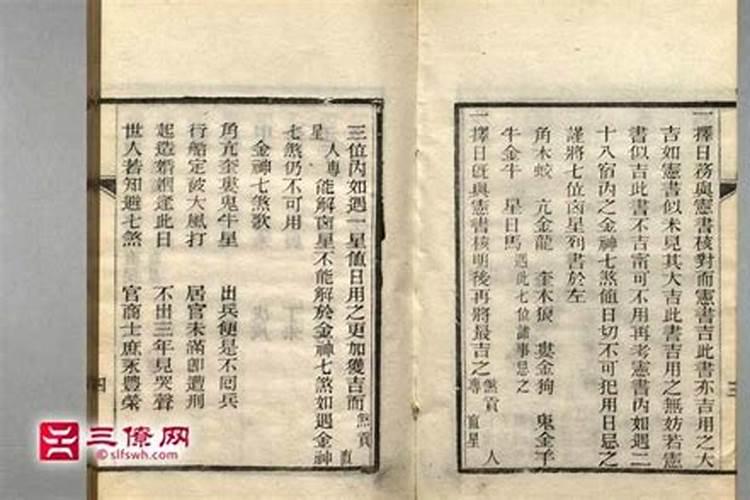 一擇日務與憲書核對而憲書吉此書亦吉用之大
吉如憲書似未見其大吉此書吉用之無妨若憲
書似吉此書不吉甯可不用再考憲書內如遇二
十八宿內之金神七煞値日切不可犯用日忌之
謹將七位凶星列書於左
角木蛟 亢金龍 奎木狼 婁金狗 鬼金羊
牛金牛 星日馬 遇此七位諸事忌之
一擇日旣與憲書核明後再將最吉之 煞貢 專 直星 人
三
三位內如遇一星値日用之更加獲吉而 煞貢 直
星 人專 能解凶星不能解於金神七煞如遇金神
七煞仍不可用
金神七煞歌
角亢奎婁鬼牛星 出兵便是不囘兵
行船定被大風打 居官未滿卽遭刑
起造婚姻逢此日 不出三年見哭聲
世人若知避七煞 官商士庶永豐榮
四
三僚网
©slfswh.com